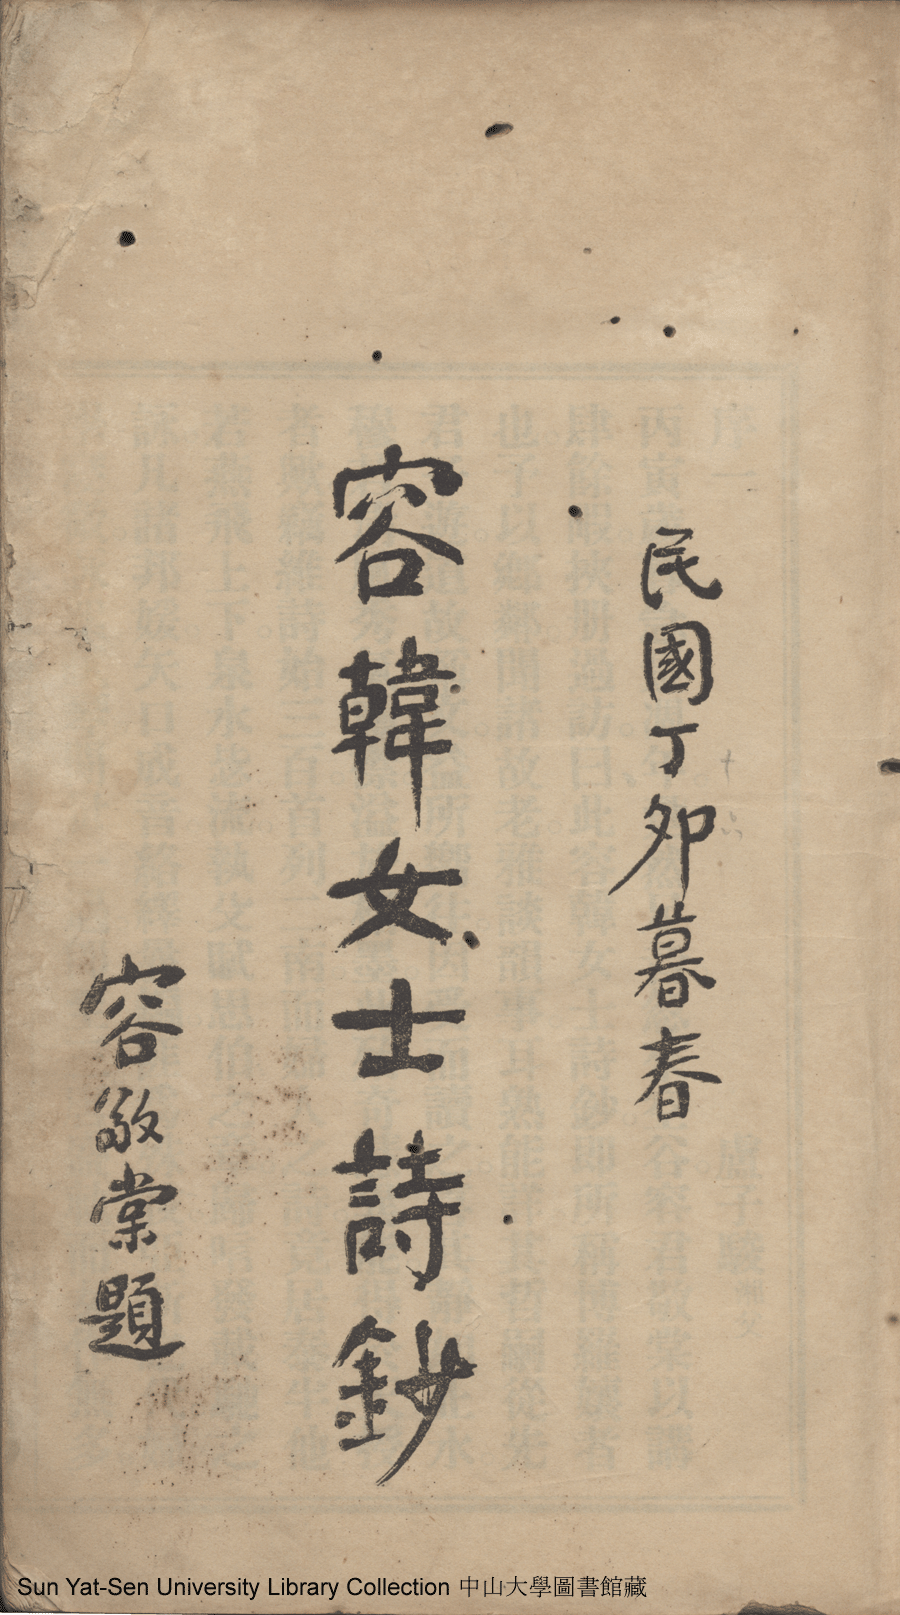 民國丁卯暮春
容韓女士詩鈔
容敬棠題
Sun Yat-Sen University Library Collection 中山大學圖書館藏